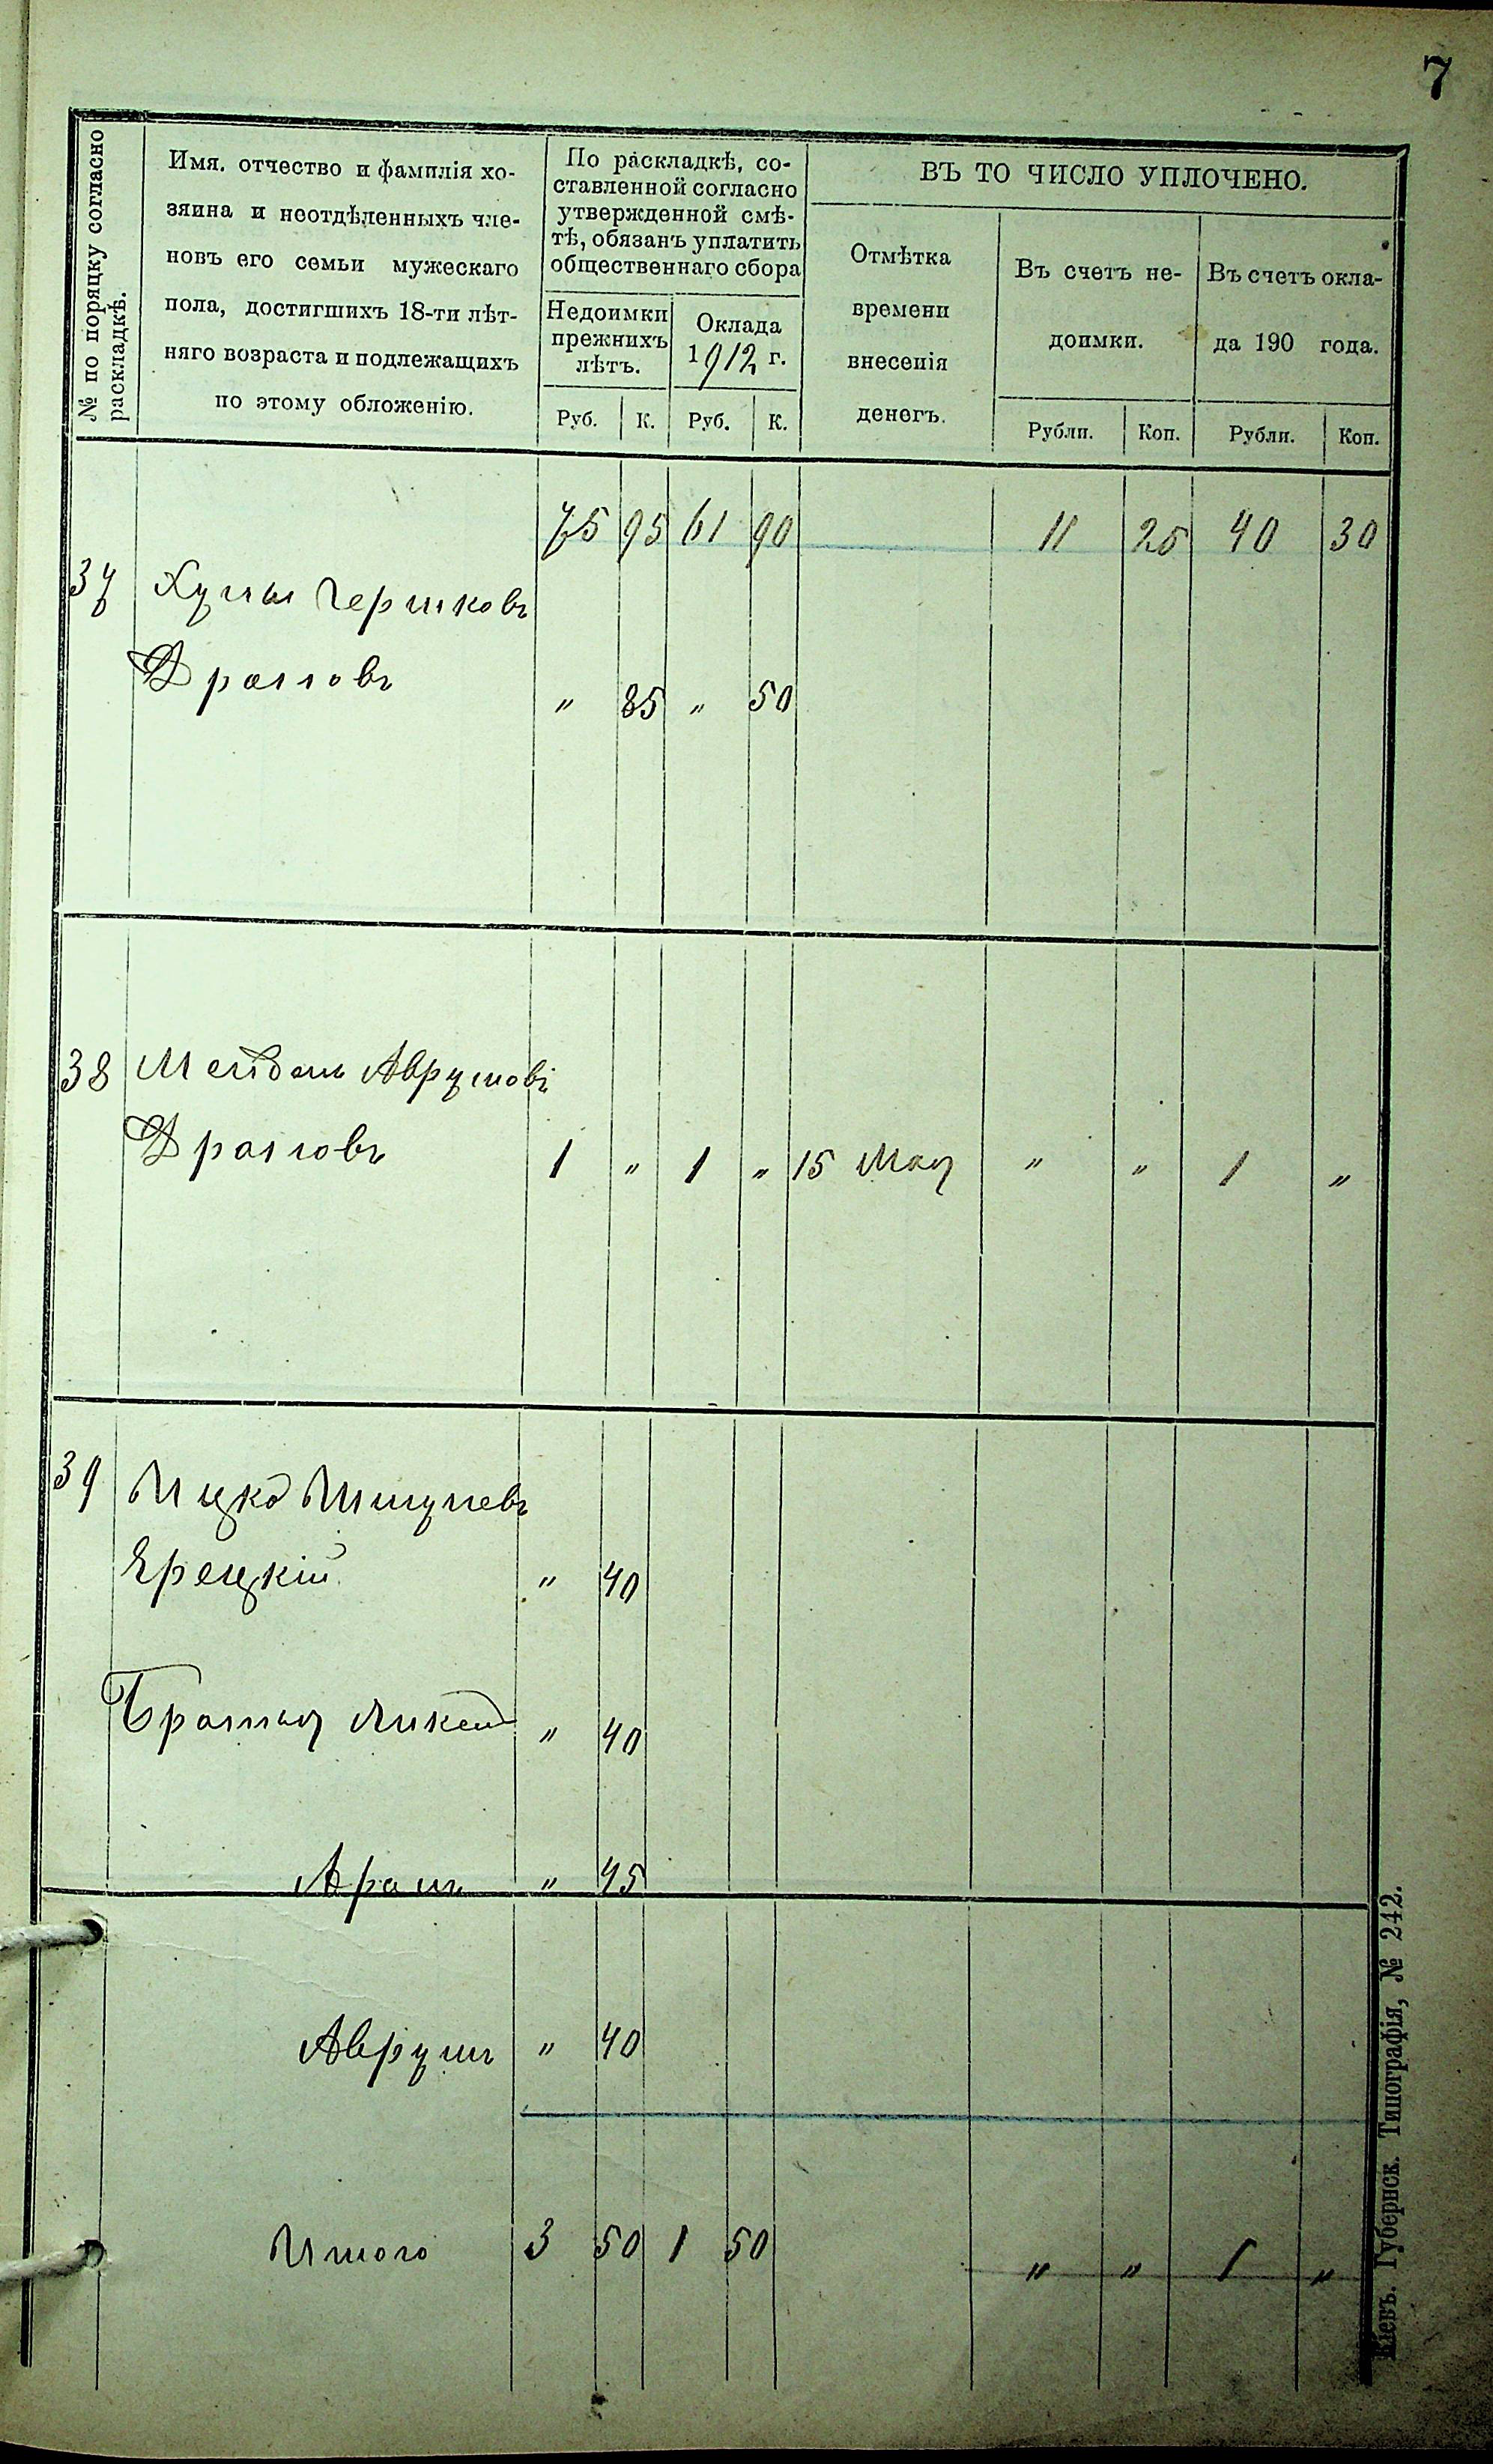 7
№ по поряцку согласно
раскладкѣ.
Имя. отчество и фамилія хо-
зяина и неотдѣленныхъ чле-
новъ его семьи мужескаго
пола, достигшихъ 18-ти лѣт-
няго возраста и подлежащихъ
по этому обложенію.
По раскладкѣ, со-
ставленной согласно
утвержденной смѣ-
тѣ, обязанъ уплатить
общественнаго сбора
Недоимки
прежнихъ
лѣтъ.
Руб. К.
Оклада
1912 г.
Руб. К.
ВЪ ТО ЧИСЛО УПЛОЧЕНО.
Отмѣтка
времени
внесенія
денегъ.
Въ счетъ не-
доимки.
Рубли. Коп.
Въ счетъ окла-
да 190 года.
Рубли. Коп.
75 95 61 90 11 25 40 30
37 Гершковъ
" 85 " 50
38 Аврумовъ
1 " 1 " 15 Мая " " 1 "
39 Ицко
Ярецкій " 40
Братья " 40
" 45
Аврумъ " 40
Итого 3 50 1 50 " " 1 "
Кіевъ. Губернск. Типографія, № 242.